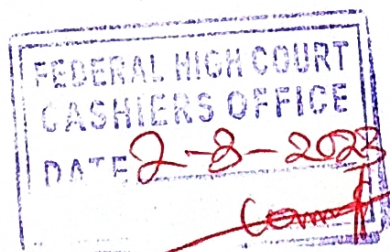 FEDERAL HIGH COURT
CASHIERS OFFICE
DATE 2-8-2023